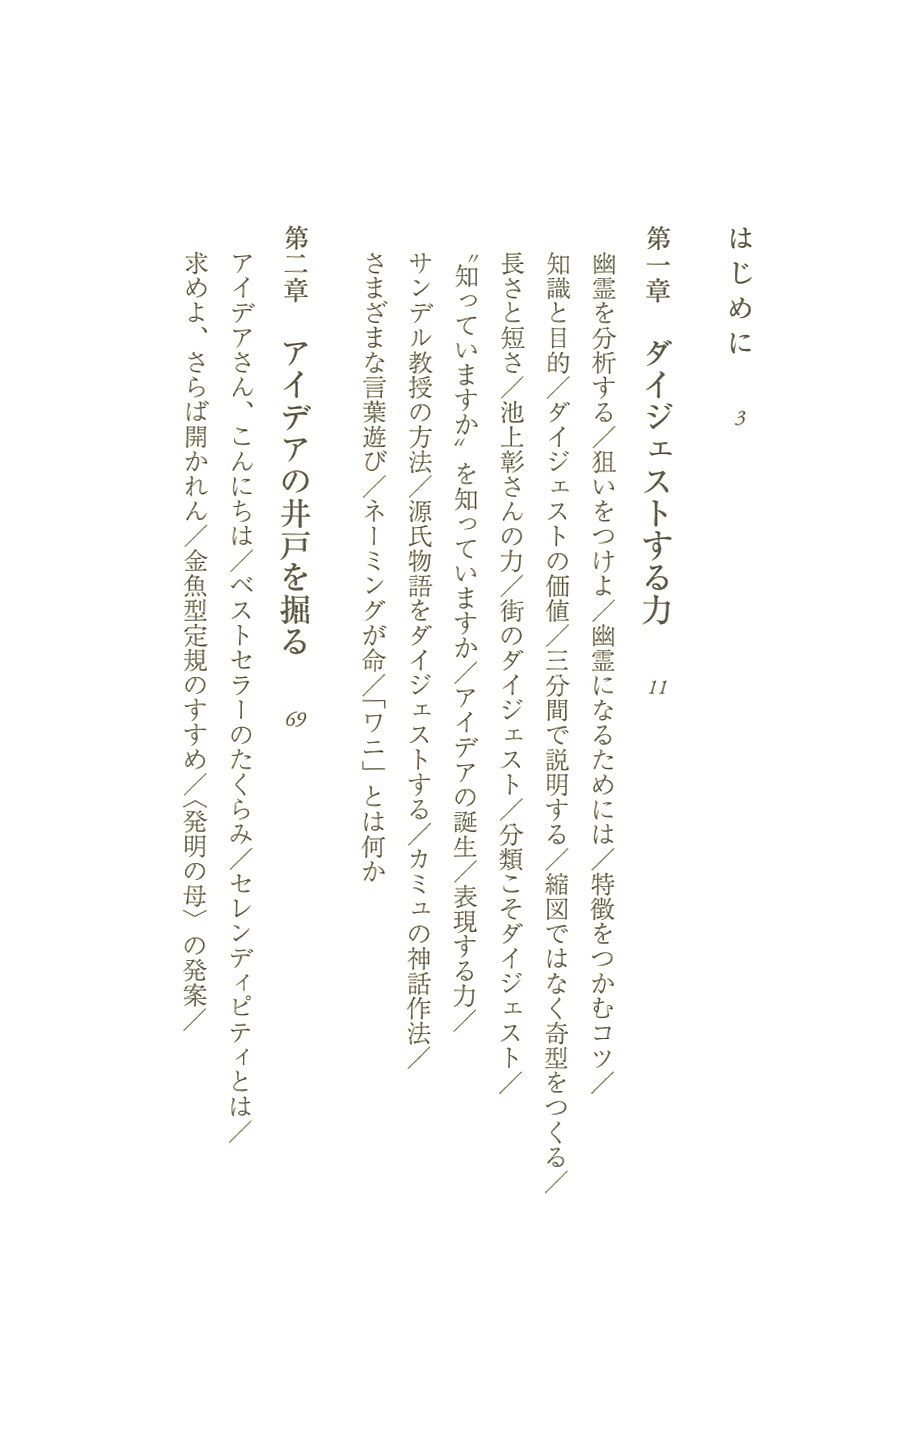 はじめに 3
第一章 ダイジェストする力 11
幽霊を分析する／狙いをつけよ／幽霊になるためには／特徴をつかむコツ／
知識と目的／ダイジェストの価値／三分間で説明する／縮図ではなく奇型をつくる／
長さと短さ／池上彰さんの力／街のダイジェスト／分類こそダイジェスト／
〝知っていますか〟を知っていますか／アイデアの誕生／表現する力／
サンデル教授の方法／源氏物語をダイジェストする／カミュの神話作法／
さまざまな言葉遊び／ネーミングが命／「ワニ」とは何か
第二章 アイデアの井戸を掘る 69
アイデアさん、こんにちは／ベストセラーのたくらみ／セレンディピティとは／
求めよ、さらば開かれん／金魚型定規のすすめ／〈発明の母〉の発案／